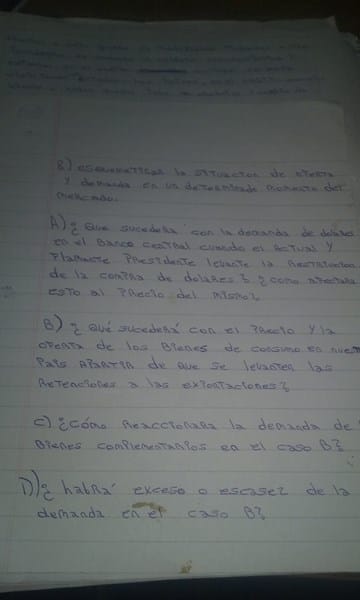 8) esquematizar la situacion de oferta
y demanda en un determinado momento del
mercado.
A) ¿ que sucedera con la demanda de dolares
en el Banco central cuando el actual y
flamante Presidente levante la restriccion
de la compra de dolares? ¿ como afectara
esto al Precio del mismo?
B) ¿ Qué sucederá con el Precio y la
oferta de los Bienes de consumo en nues
Pais apartir de que se levanten las
Retenciones a las exportaciones?
C) ¿Cómo Reaccionara la demanda de
Bienes complementarios en el caso B?
D) ¿ habrá exceso o escasez de la
demanda en el caso B?